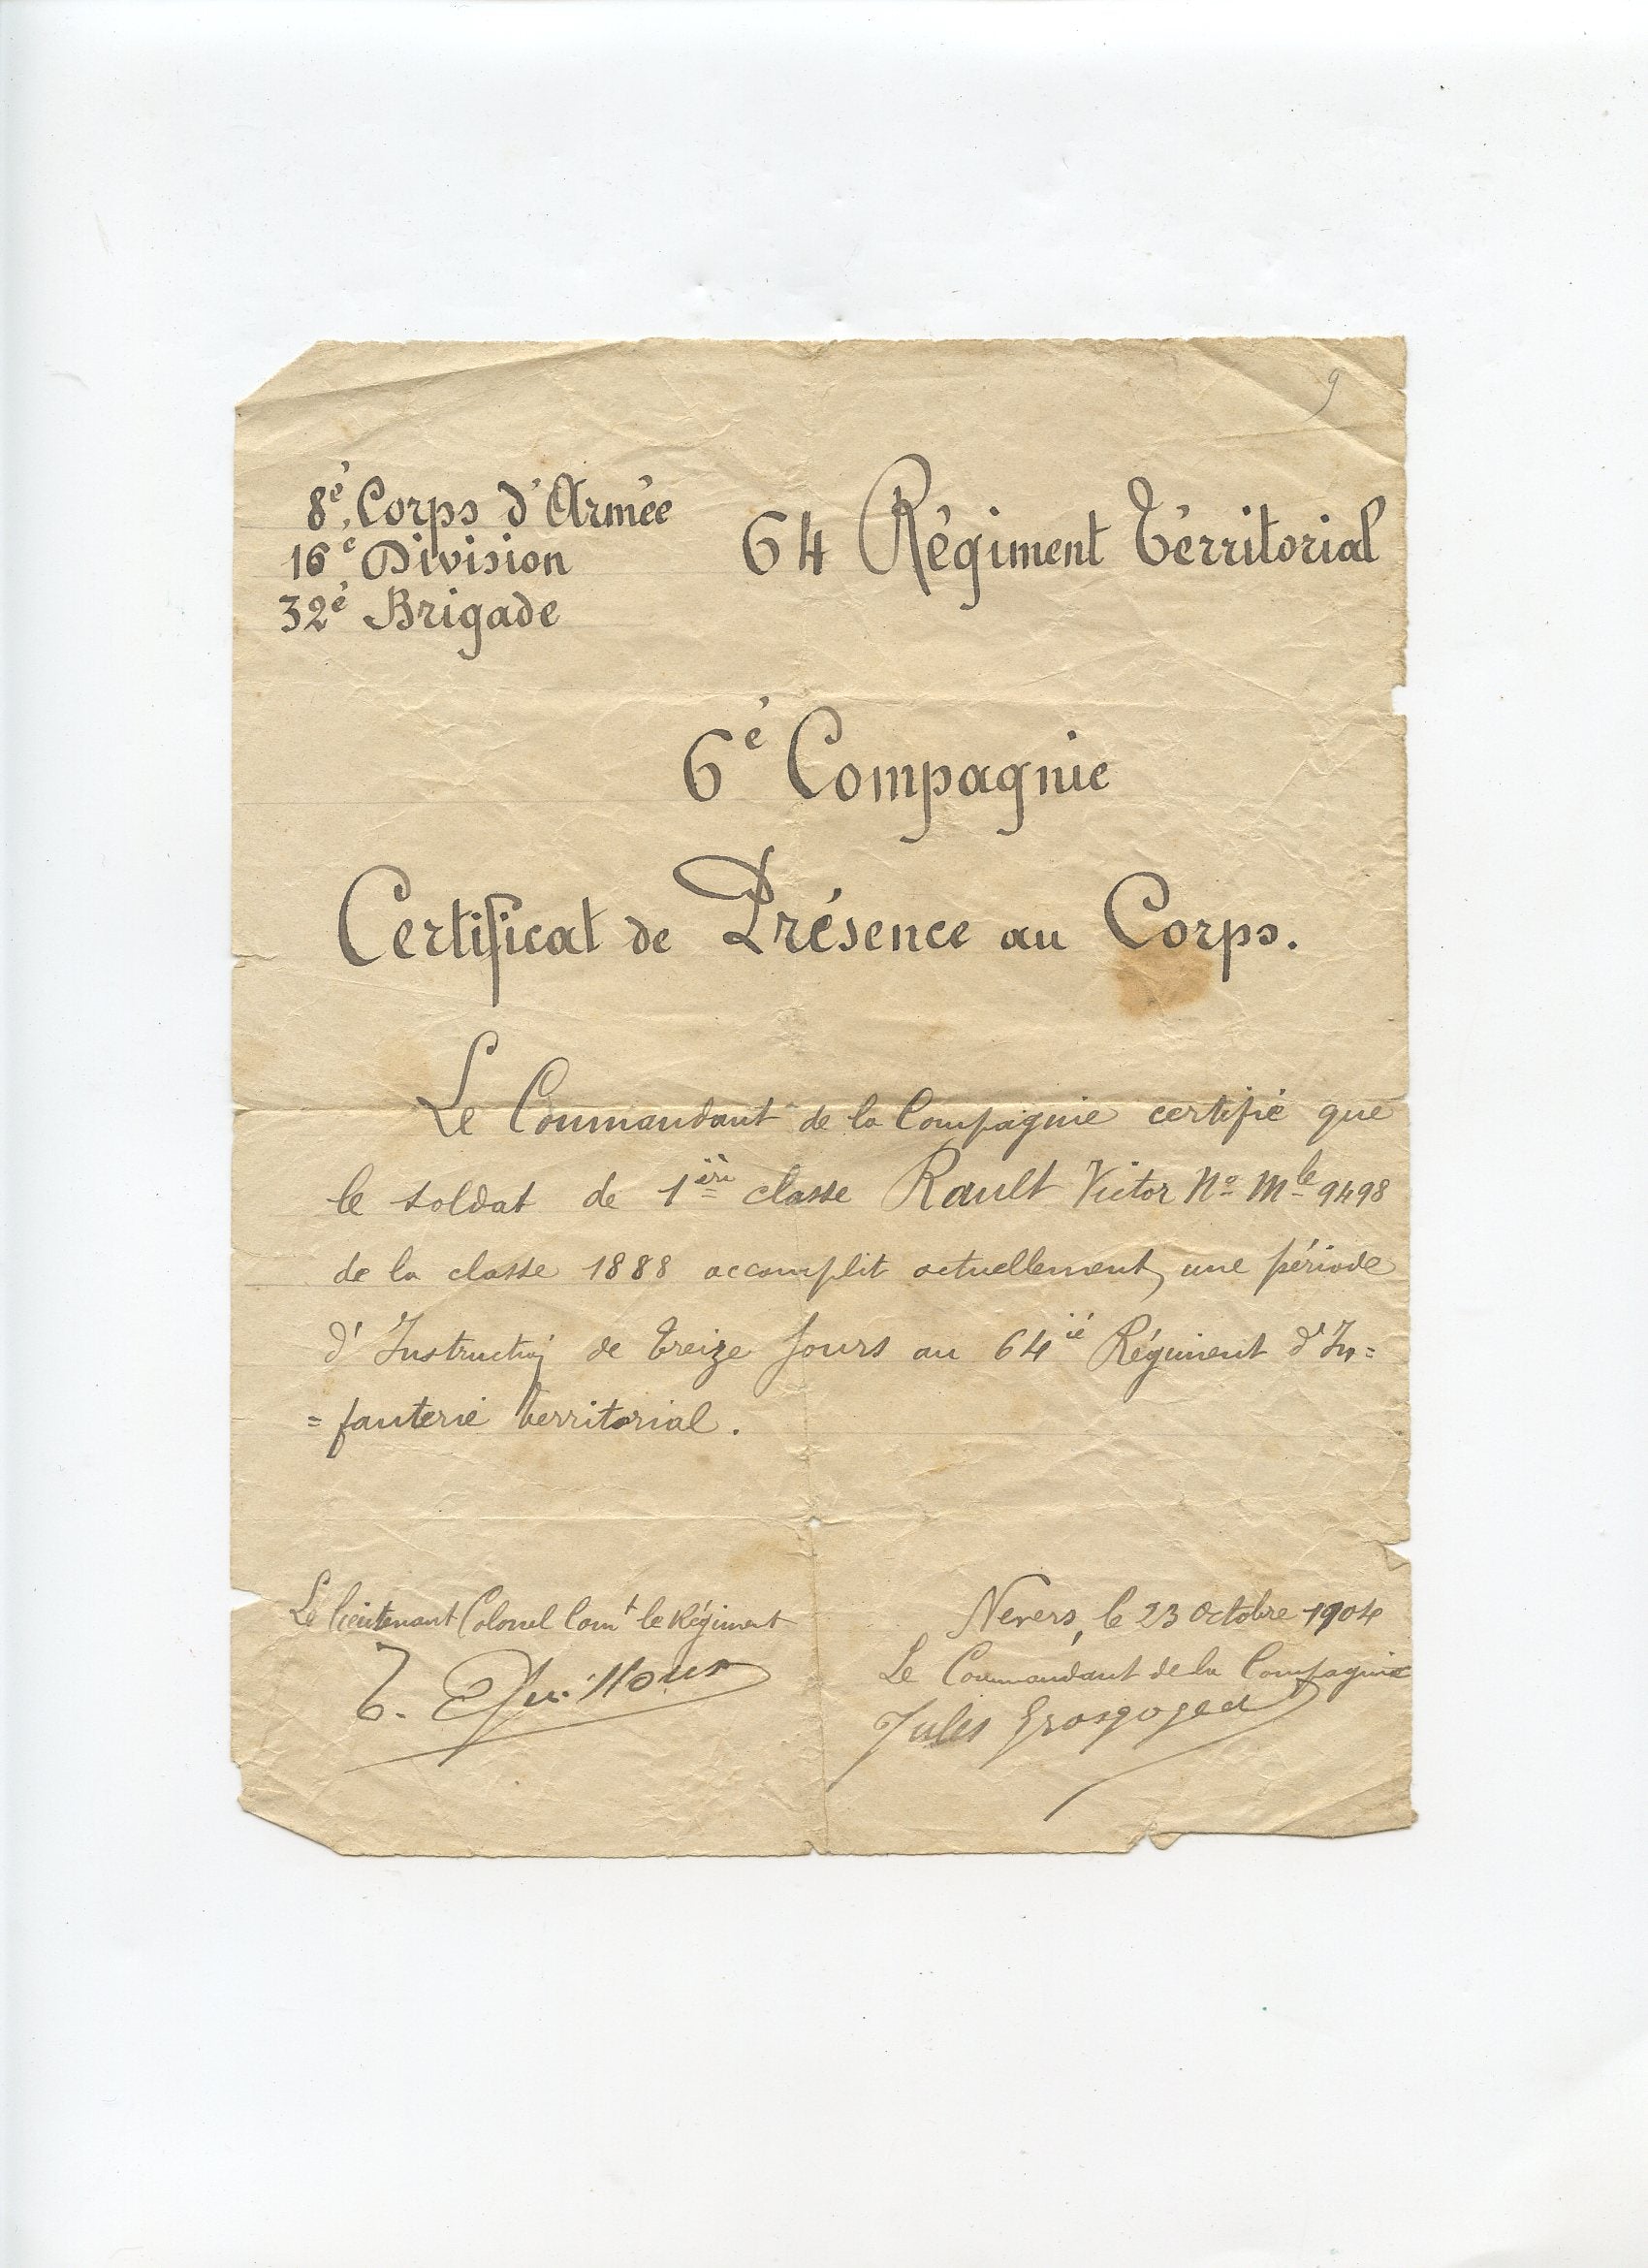 9
8è Corps d'Armée
16e Division
32è Brigade
64 Régiment Térritorial
6è Compagnie
Certificat de Présence au Corps.
Le Commandant de la Compagnie certifie que
le soldat de 1ère classe Rault Victor No Mle 9498
de la classe 1888 accomplit actuellement, une période
d'Instruction de treize Jours au 64ie Régiment d'In=
=fanterie territorial.
Le lieutenant Colonel Comt le Régiment
Nevers, le 23 Octobre 1904
Le Commandant de la Compagnie
Jules